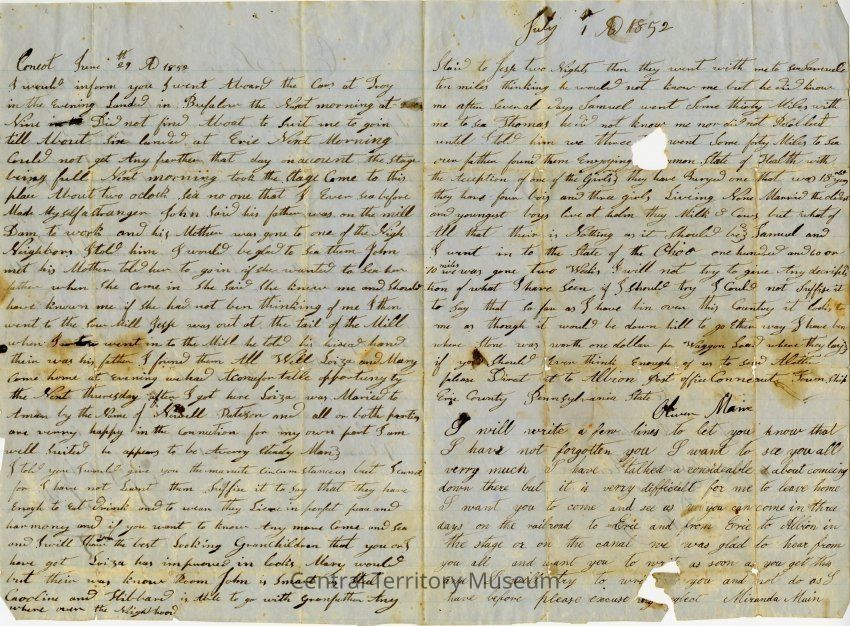 Coneot June 29th AD 1852
I would inform you I went Aboard the Cars at Troy
in the Evening Landed in Bufalow the Next morning at
Nine Did not find A boat to Suit me to go in
till About Six landed at Erie Next Morning
Could not get Any farther that day on account the Stage
being full Next morning took the Stage Come to this
place About two oclock Sea no one that I Ever sea before
Made Myself a stranger John Said his father was on the mill
Dam to work and his Mother was gone to one of the Nigh
Neighbors I told him I would be glad to Sea them John
met his Mother told her to go in if she wanted to Sea her
father when She Come in She Said She knew me and Should
have known me if she had not ben thinking of me I then
went to the Saw Mill Jesp was out at the tail of the Mill
when I went in to the Mill he told his hired hand
their was his father I found them All Well Loiza and Mary
Come home at evening we had A comfortable opportunity
the Next thursday after I got here Loiza was Maried to
A man by the Name of Newell Paterson and all or both parties
are verry happy in the connection for my own part I am
well Suited he appears to be A verry steady Man
I told you I would give you the minute circumstances but I
for I have not Learnt them Suffise it to Say that they have
Enogh to Eat Drink and to wear they Live in perfect peace and
harmony and if you want to know Any more Come and Sea
and I will Show the best Looking Grandchildren that you or I
have got Loiza has improved in looks Mary would
but their was know Room John is Smart
Caroline and Hibbard is Able to go with Granfather Any
where over the Neighbood
July 1 AD 1852
Staid to Jesp two Nights then they went with me to sea Samuel
ten miles thinking he would not know me but he did know
me after Several days Samuel went Some thirty Miles with
me to Sea Thomas he did not know me nor did not Recolect
until I told him we three went Some forty Miles to Sea
own father found them Enjoying mon State of Health with
the Exception of one of the Girls they have Buryed one that was 18 years
they have four boys and three girls Living None Maried the oldest
and youngest boys live at holm they Milk Cows but what of
All that their is Nothing as it Should be Samuel and
I went in to the State of the Ohio one hundred and 60 or
70 miles we was gone two Weeks I will not try to give Any descripti
on of what I have Seen if I should try I Could not Suffise it
to Say that So far as I have ben over this Country it looks to
me as though it would be down hill to go their way I have ben
where Stone was worth one dollar per Waggon Load where they
if you Should Ever think Enough of us to send A letter
please Direct it to Albion Post office Conneaut Township
Erie County Pennsylvania State
Oliver Main
I will write a few lines to let you know that
I have not forgotten you I want to see you all
verry much I have talked a considable about comeing
down there but it is verry difficult for me to leave home
I want you to come and see us you can come in three
days on the railroad to Erie and from Erie to Albion in
the stage or on the canal we was glad to hear from
you all and want you to write as soon as you get this
try to write you and not do as I
have before please excuse my neglect Miranda Main
Central Territory Museum